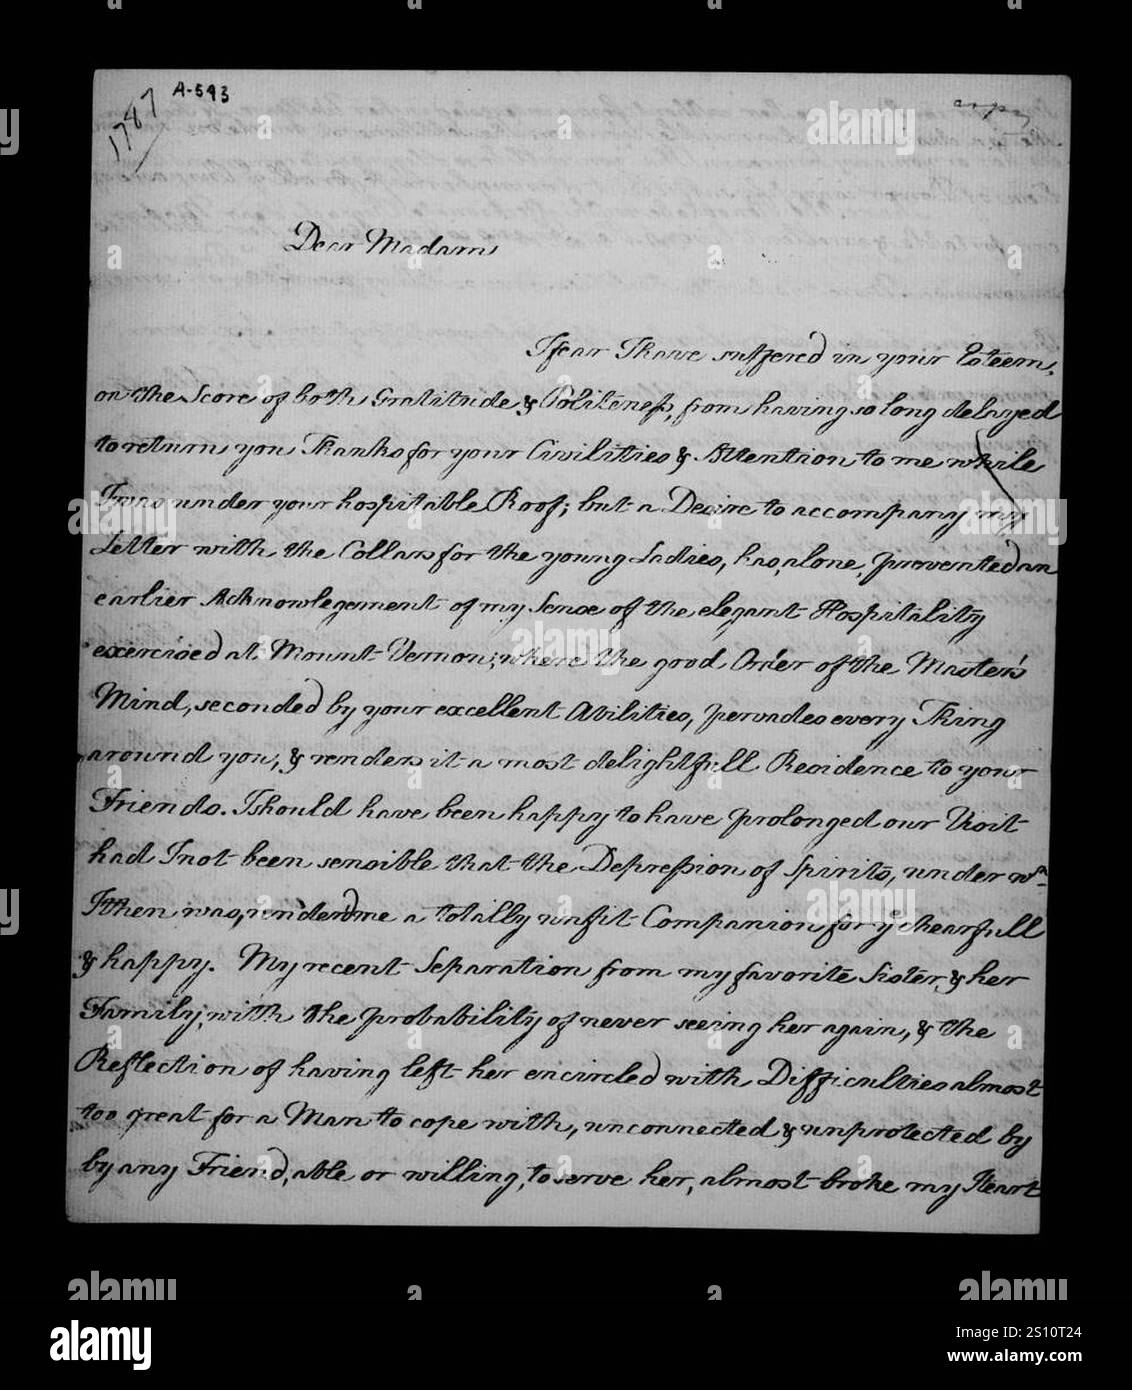 1787
A-593
copy
Dear Madam
I fear I have suffered in your Esteem,
on the Score of both Gratitude & Politeness, from having so long delayed
to return you Thanks for your Civilities & Attention to me while
I was under your hospitable Roof; but a Desire to accompany my
Letter with the Collars for the young Ladies, has, alone, prevented an
earlier Acknowlegement of my Sense of the elegant Hospitality
exercised at Mount-Vernon; where the good Order of the Master's
Mind, seconded by your excellent Abilities, pervades every Thing
around you, & renders it a most delightfull Residence to your
Friends. I should have been happy to have prolonged our Visit
had I not been sensible that the Depression of Spirits, under wch
I then was, render'd me a totally unfit Companion for ye chearfull
& happy. My recent Separation from my favorite Sister, & her
Family, with the probability of never seeing her again, & the
Reflection of having left her encircled with Difficulties almost
too great for a Man to cope with, unconnected & unprotected by
by any Friend, able or willing, to serve her, almost broke my Heart
alamy
Image ID: 2S10T24
www.alamy.com